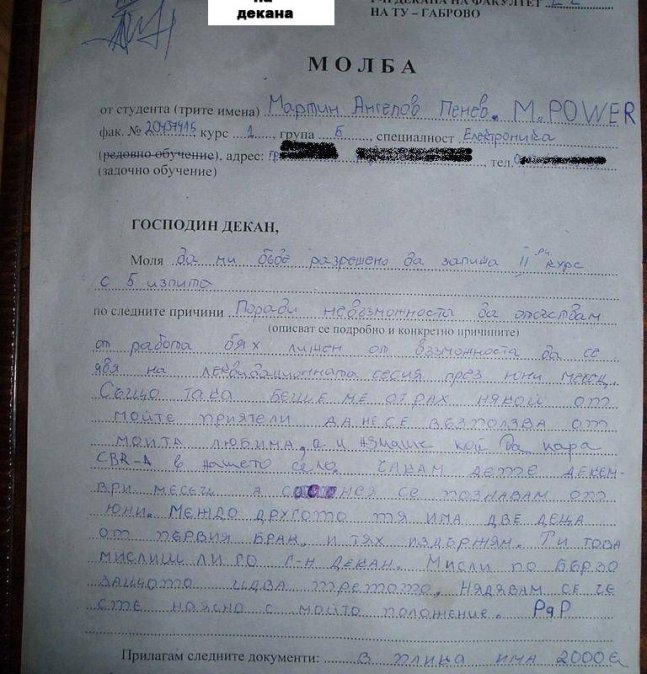 на
декана
ДЕКАНА НА ФАКУЛТЕТ
НА ТУ – ГАБРОВО
МОЛБА
от студента (трите имена) Мартин Ангелов Пенев. M.POWER
фак. № 20437415 курс 1, група Б, специалност Електроника
(редовно обучение), адрес: гр тел.
(задочно обучение)
ГОСПОДИН ДЕКАН,
Моля да ми бъде разрешено да запиша II ри курс
с 5 изпита
по следните причини Поради невъзможноста да отсъствам
(описват се подробно и конкретно причините)
от работа бях лишен от възможноста да се
явя на ликвидационната сесия през юни месец.
Също така беше ме страх някой от
мойте приятели да несе възползва от
моита любима, а и нямаше кой да кара
CBR-А в нашето село. Чакам дете декем-
ври месец а с нея се познавам от
юни. Между другото тя има две деца
от първия брак, и тях издържам. Ти това
мислиш ли го г-н декан. Мисли по бързо
защото идва третото. Надявам се че
сте наясно с мойто положение. РдР
Прилагам следните документи: в плика има 2000 €